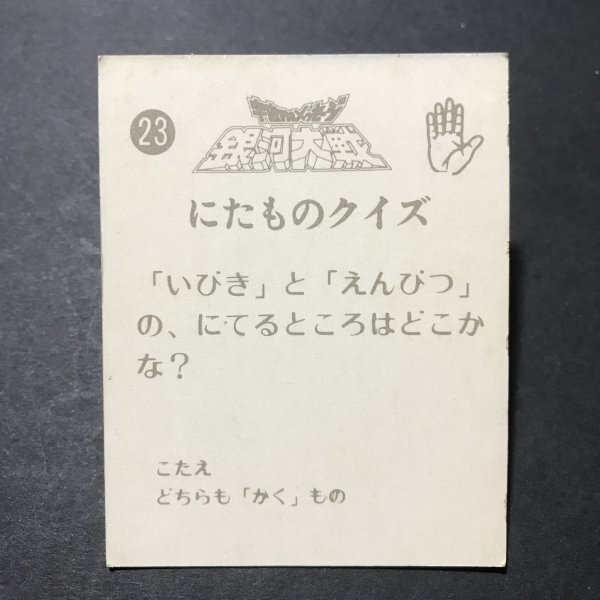 23
宇宙からのメッセージ
銀河大戦
にたものクイズ
「いびき」と「えんぴつ」
の、にてるところはどこか
な？
こたえ
どちらも「かく」もの